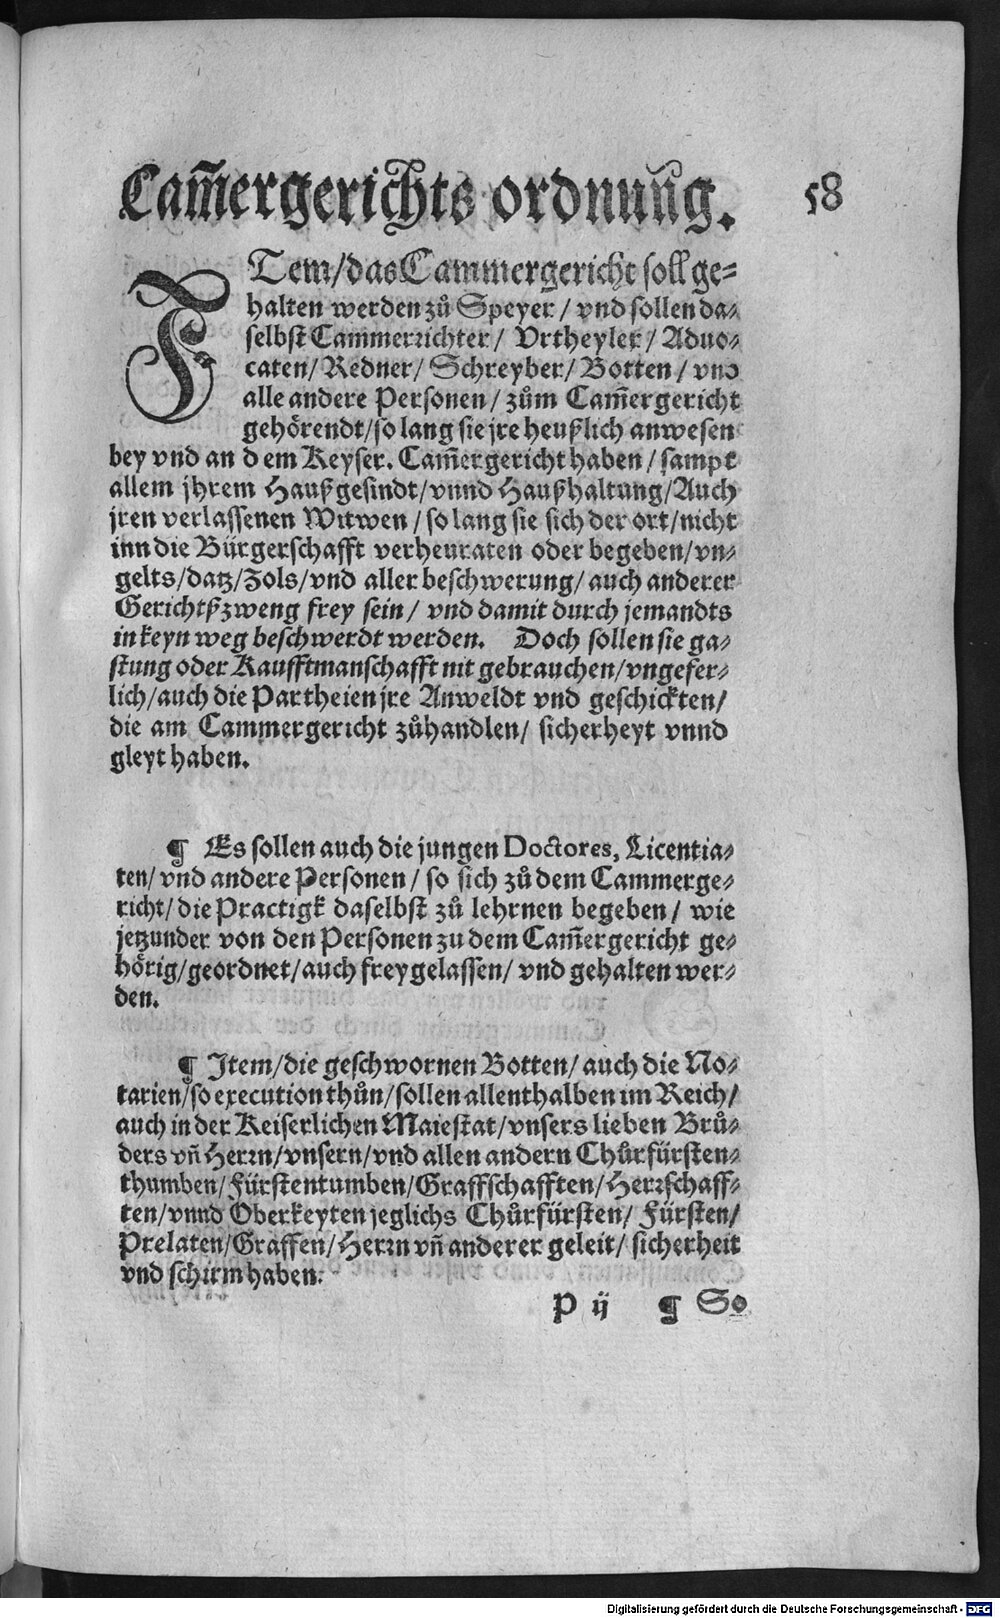 Cam̃ergerichts ordnung. 58
ITem/das Cammergericht soll ge-
halten werden zů Speyer / vnd sollen da-
selbst Cammerrichter / Vrtheyler / Aduo-
caten / Redner / Schreyber / Botten / vnd
alle andere Personen / zům Cam̃ergericht
gehörendt / so lang sie jre heußlich anwesen
bey vnd an dem Keyser. Cam̃ergericht haben / sampt
allem jhrem Haußgesindt / vnnd Haußhaltung / Auch
jren verlassenen Witwen / so lang sie sich der ort / nicht
inn die Bürgerschafft verheuraten oder begeben / vn-
gelts / datz / Zols / vnd aller beschwerung / auch anderer
Gerichtßzweng frey sein / vnd damit durch jemandts
in keyn weg beschwerdt werden. Doch sollen sie ga-
stung oder Kauffmanschafft nit gebrauchen / vngefer-
lich / auch die Partheien jre Anweldt vnd geschickten /
die am Cammergericht zůhandlen / sicherheyt vnnd
gleyt haben.
¶ Es sollen auch die jungen Doctores, Licentia-
ten / vnd andere Personen / so sich zů dem Cammerge-
richt / die Practigk daselbst zů lehrnen begeben / wie
jetzunder von den Personen zu dem Cam̃ergericht ge-
hörig / geordnet / auch frey gelassen / vnd gehalten wer-
den.
¶ Item / die geschwornen Botten / auch die No-
tarien / so execution thůn / sollen allenthalben im Reich /
auch in der Keiserlichen Maiestat / vnsers lieben Brů-
ders vñ Herrn / vnsern / vnd allen andern Chůrfürsten-
thumben / Fürstentumben / Graffschafften / Herrschaff-
ten / vnnd Oberkeyten jeglichs Chůrfürsten / Fürsten /
Prelaten / Graffen / Herrn vñ anderer geleit / sicherheit
vnd schirm haben.
P ij ¶ So
Digitalisierung gefördert durch die Deutsche Forschungsgemeinschaft - DFG